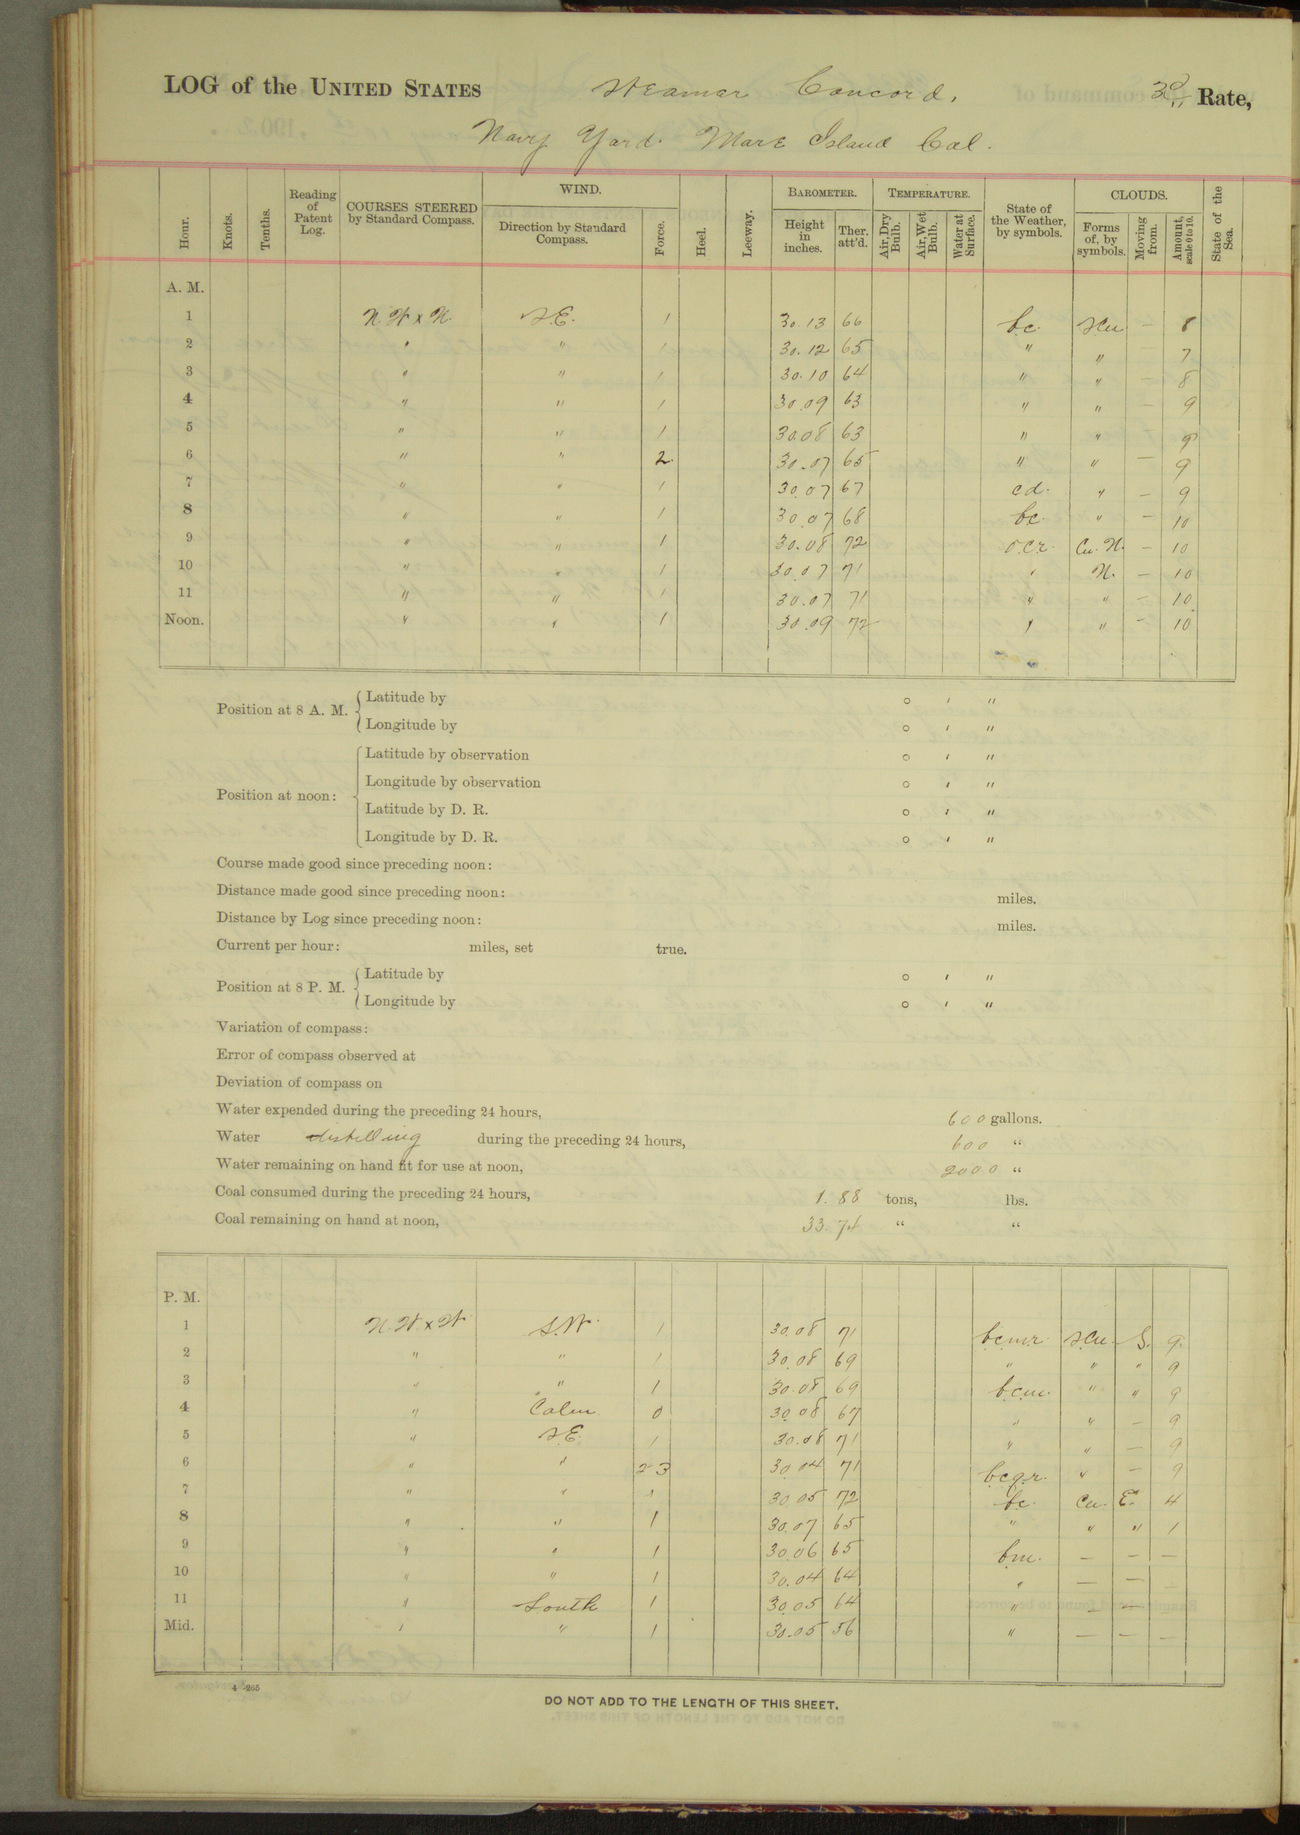 LOG of the UNITED STATES Steamer Concord, 3d Rate,
Navy Yard. Mare Island Cal.
Hour. Knots. Tenths. Reading of Patent Log. COURSES STEERED by Standard Compass. WIND. Direction by Standard Compass. Force. Heel. Leeway. BAROMETER. Height in inches. Ther. att'd. TEMPERATURE. Air, Dry Bulb. Air, Wet Bulb. Water at Surface. State of the Weather, by symbols. CLOUDS. Forms of, by symbols. Moving from. Amount, scale 0 to 10. State of the Sea.
A. M.
1 N.W x N. S.E. 1 30.13 66 bc. S.Cu — 8
2 " " 1 30.12 65 " " — 7
3 " " 1 30.10 64 " " — 8
4 " " 1 30.09 63 " " — 9
5 " " 1 30.08 63 " " 9
6 " " 2 30.07 65 " " — 9
7 " " 1 30.07 67 cd. " — 9
8 " " 1 30.07 68 bc. " — 10
9 " " 1 30.08 72 o.c.r. Cu. N. — 10
10 " " 1 30.07 71 " N. — 10
11 " " 1 30.07 71 " " — 10
Noon. " " 1 30.09 72 " " — 10
Position at 8 A. M. { Latitude by ° ' "
Longitude by ° ' "
Position at noon: { Latitude by observation ° ' "
Longitude by observation ° ' "
Latitude by D. R. ° ' "
Longitude by D. R. ° ' "
Course made good since preceding noon:
Distance made good since preceding noon: miles.
Distance by Log since preceding noon: miles.
Current per hour: miles, set true.
Position at 8 P. M. { Latitude by ° ' "
Longitude by ° ' "
Variation of compass:
Error of compass observed at
Deviation of compass on
Water expended during the preceding 24 hours, 600 gallons.
Water distilling during the preceding 24 hours, 600 "
Water remaining on hand fit for use at noon, 2000 "
Coal consumed during the preceding 24 hours, 1.88 tons, lbs.
Coal remaining on hand at noon, 33.74 " "
P. M.
1 N.W x W. S.W. 1 30.08 71 bcmr. S.Cu. S. 9
2 " " 1 30.08 69 " " " 9
3 " " 1 30.08 69 bcm. " " 9
4 " Calm 0 30.08 67 " " — 9
5 " S.E. 1 30.08 71 " " — 9
6 " " 2-3 30.04 71 bcqr. " — 9
7 " " 1 30.05 72 bc. Cu. E. 4
8 " " 1 30.07 65 " " " 1
9 " " 1 30.06 65 bm. — — —
10 " " 1 30.04 64 " — — —
11 " South 1 30.05 64 " — —
Mid. " " 1 30.05 56 " — — —
4—265
DO NOT ADD TO THE LENGTH OF THIS SHEET.